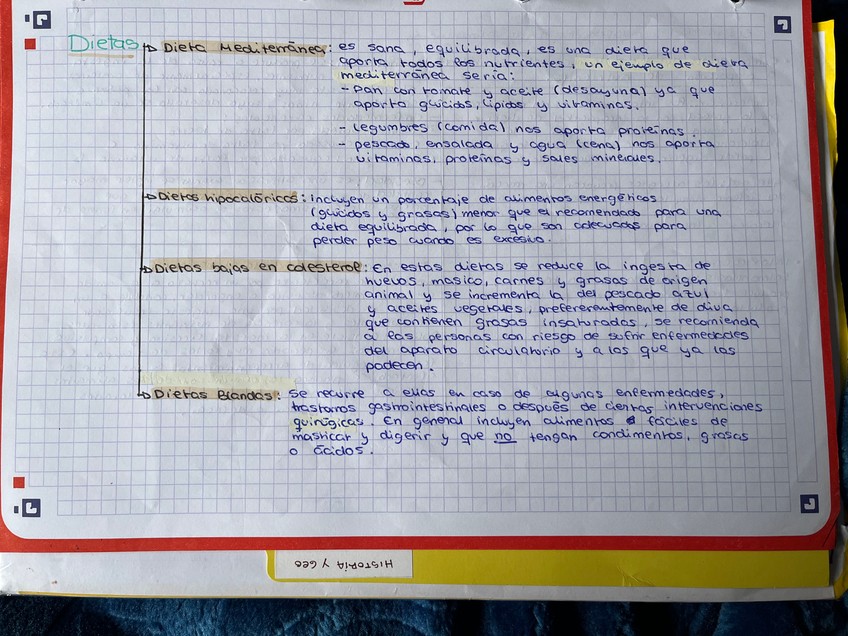 Dietas → Dieta Mediterránea: es sana, equilibrada, es una dieta que
aporta todos los nutrientes, un ejemplo de dieta
mediterránea sería:
- Pan con tomate y aceite (desayuna) ya que
aporta glúcidos, lípidos y vitaminas.
- legumbres (comida) nos aporta proteínas.
- pescado, ensalada y agua (cena) nos aporta
vitaminas, proteínas y sales minerales.
→ Dietas hipocalóricas: incluyen un porcentaje de alimentos energéticos
(glúcidos y grasas) menor que el recomendado para una
dieta equilibrada, por lo que son adecuados para
perder peso cuando es excesivo.
→ Dietas bajas en colesterol: En estas dietas se reduce la ingesta de
huevos, masico, carnes y grasas de origen
animal y se incrementa la del pescado azul
y aceites vegetales, prefererentemente de oliva
que contienen grasas insaturadas, se recomienda
a las personas con riesgo de sufrir enfermedades
del aparato circulatorio y a los que ya las
padecen.
→ Dietas Blandas: Se recurre a ellas en caso de algunas enfermedades,
trastornos gastrointestinales o después de ciertas intervenciones
quirúgicas. En general incluyen alimentos fáciles de
masticar y digerir y que no tengan condimentos, grasas
o ácidos.
HISTORIA Y GEO